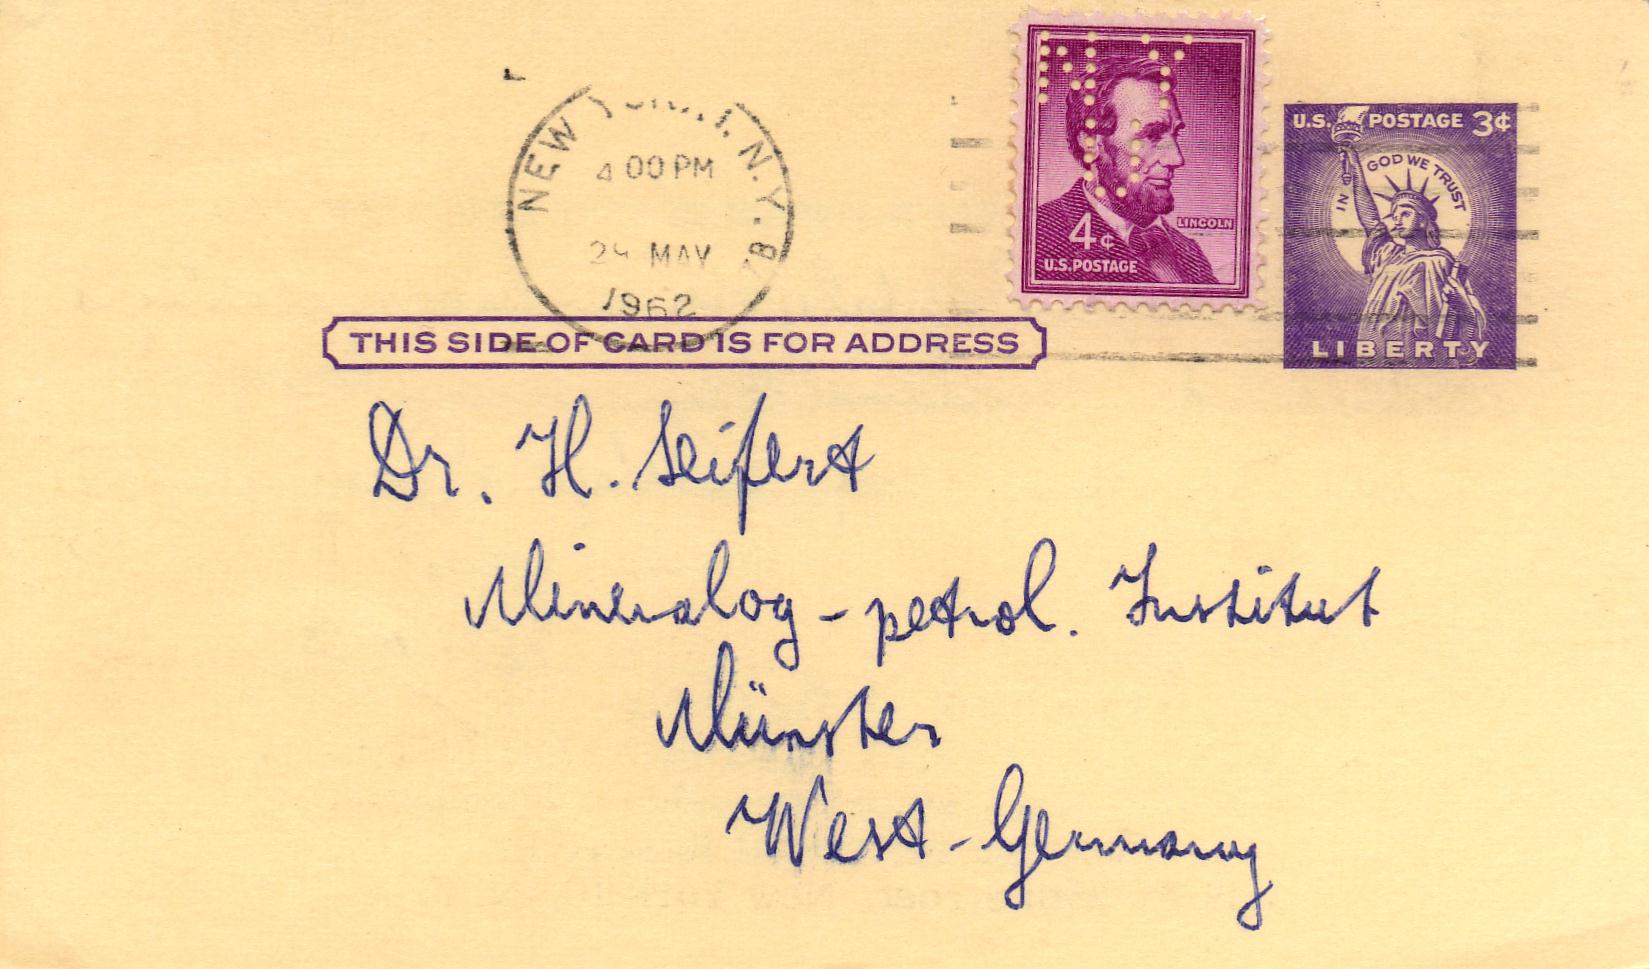 NEW YORK, N.Y.
4 00 PM
MAY
1962
NYU
LINCOLN
4¢
U.S. POSTAGE
U.S. POSTAGE 3¢
IN GOD WE TRUST
LIBERTY
THIS SIDE OF CARD IS FOR ADDRESS
Dr. H. Seifert
Mineralog-petrol. Institut
Münster
West-Germany